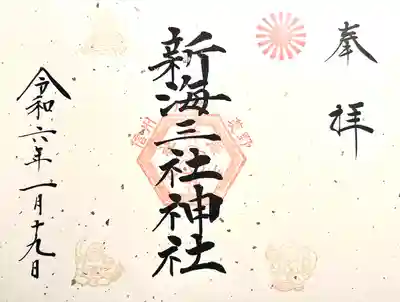 奉拝
新海三社神社
信州
令和六年一月十九日